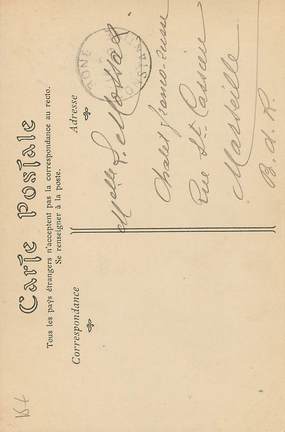 Carte Postale
Tous les pays étrangers n'acceptent pas la correspondance au recto.
Se renseigner à la poste.
Correspondance
Adresse
Melle L.
Chalet franco-russe
Rue St Cassien
Marseille
B. d. R.